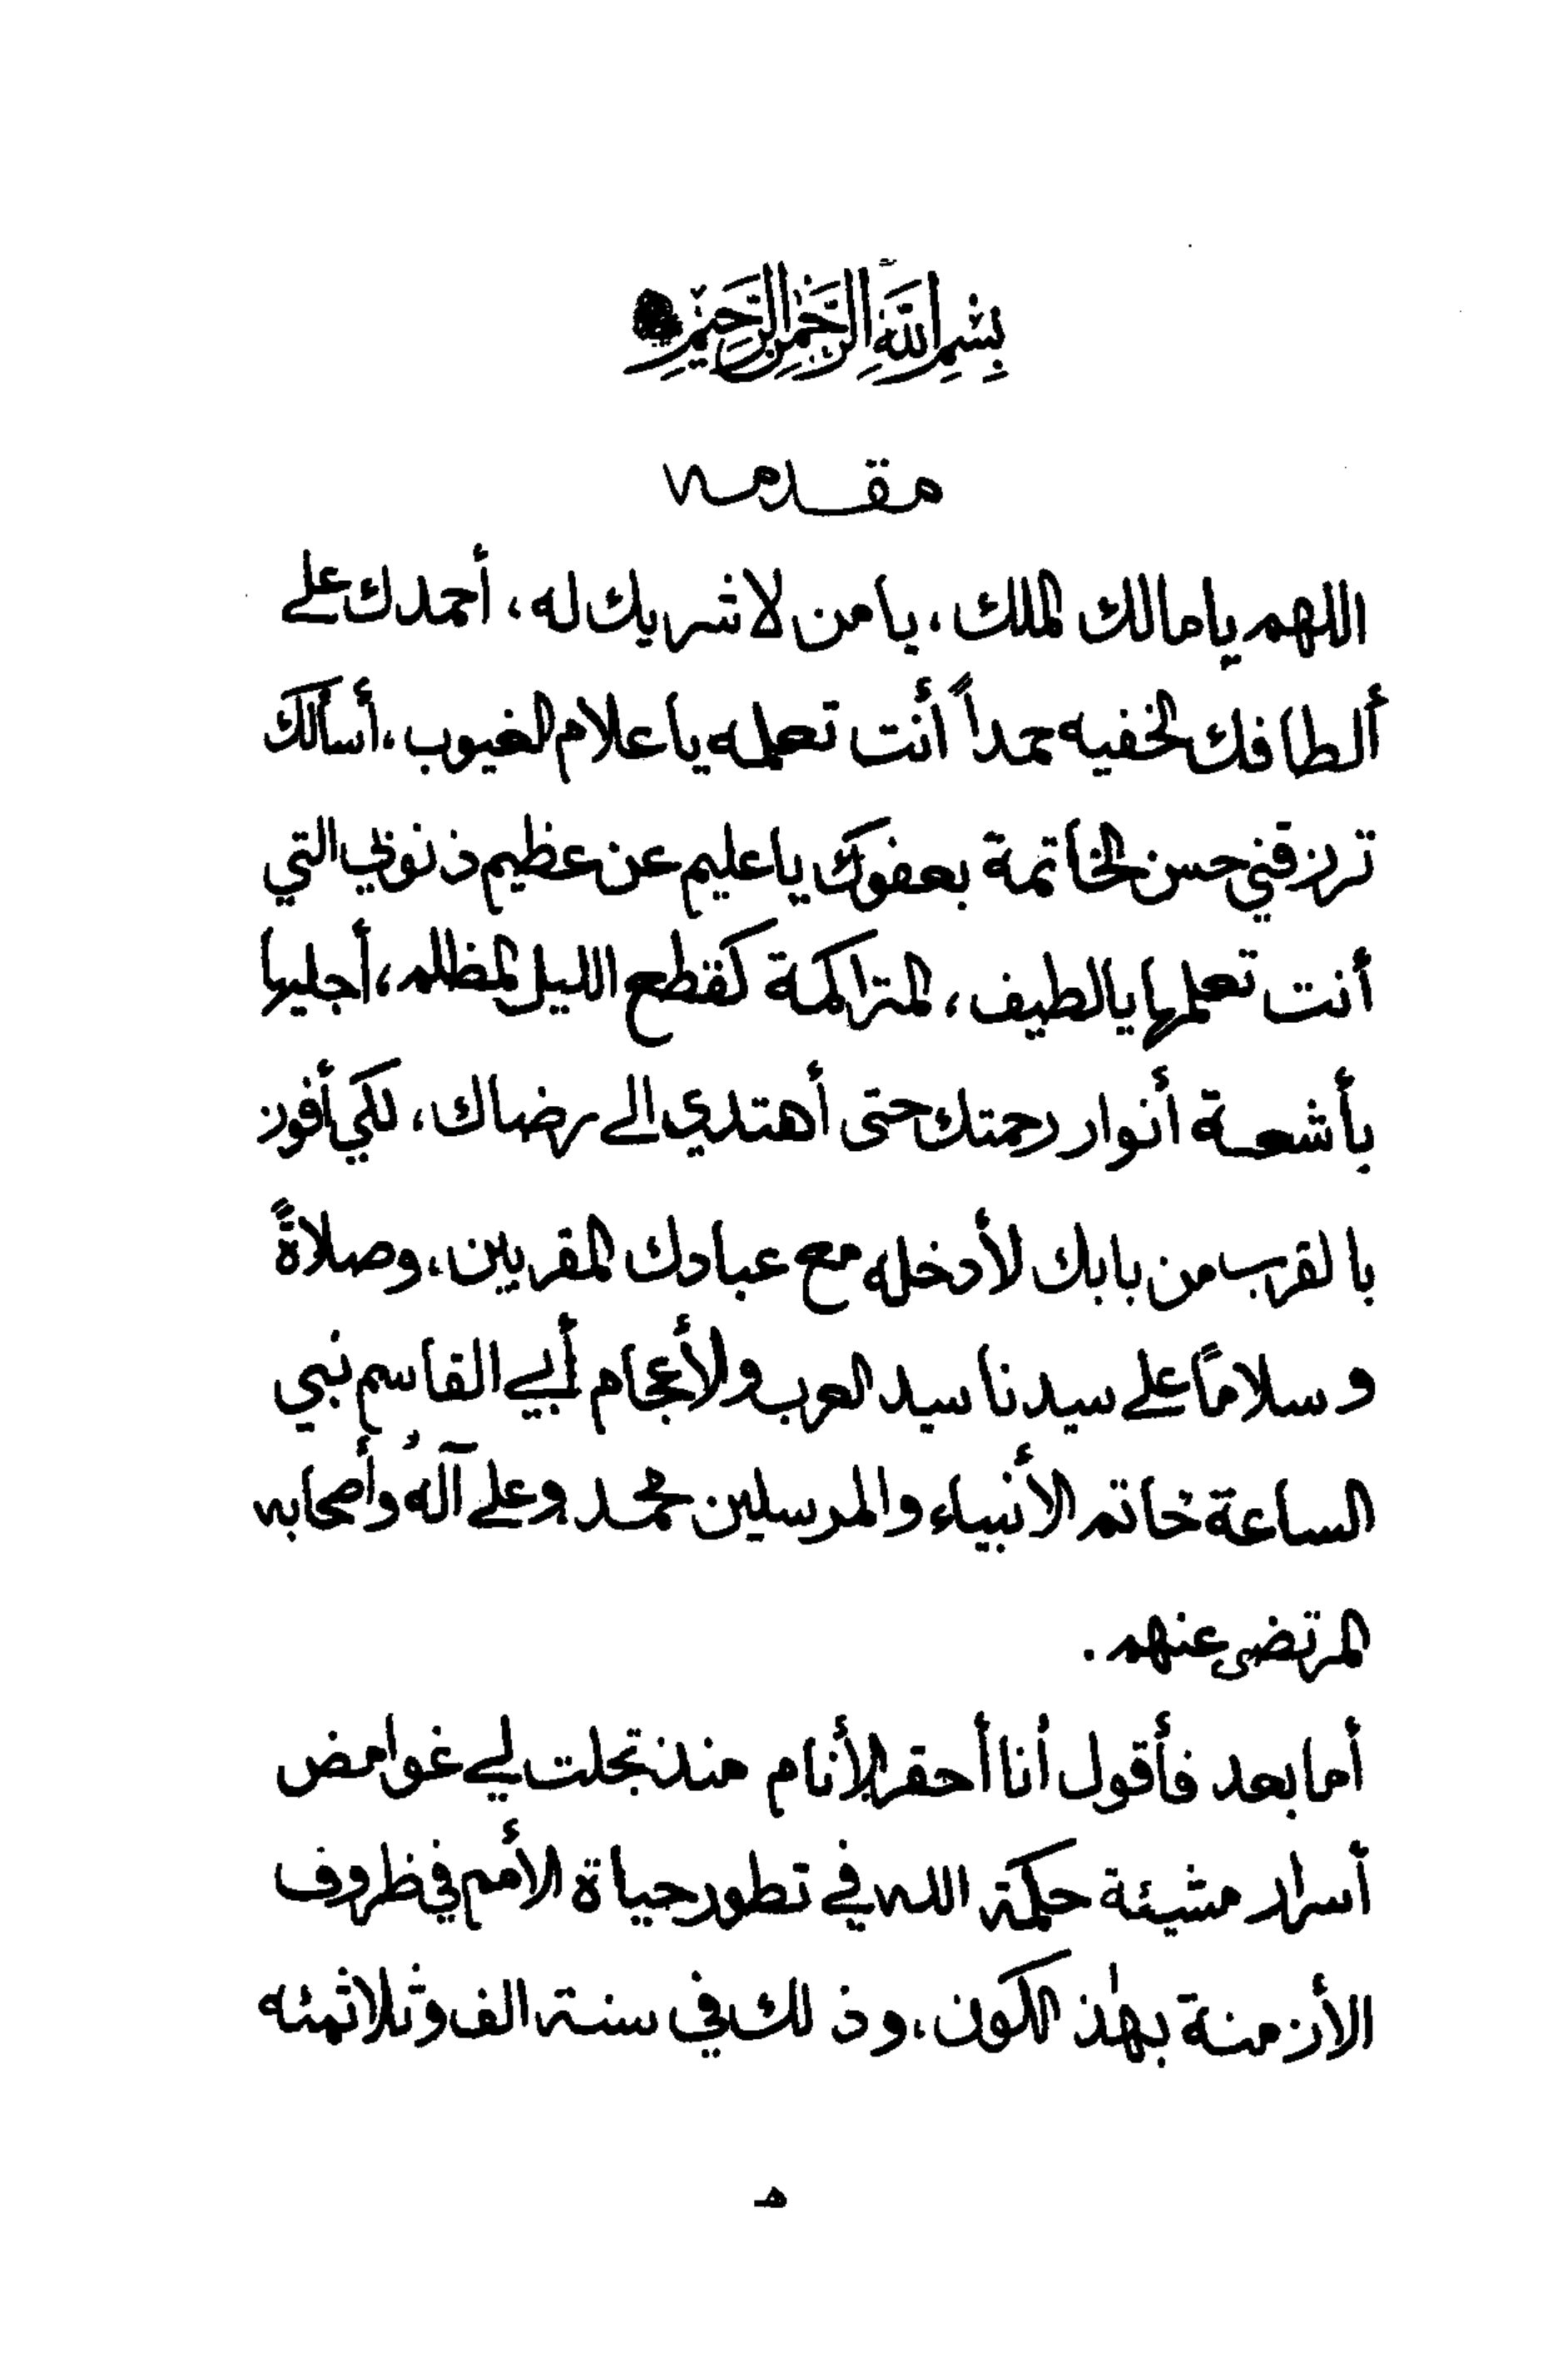 بِسْمِ اللَّهِ الرَّحْمٰنِ الرَّحِيْمِ
مقدمه
اللهم يا مالك الملك، يا من لا شريك له، أحمدك على
ألطافك الخفيه حمداً أنت تعلمه يا علام الغيوب، أسألك
ترزقني حسن الخاتمة بعفوك يا عليم عن عظيم ذنوبي التي
أنت تعلمها يا لطيف، المتراكمة كقطع الليل المظلم، أجليها
بأشعة أنوار رحمتك حتى أهتدي الى رضاك، لكي أفوز
بالقرب من بابك لأدخله مع عبادك المقربين، وصلاةً
وسلاماً على سيدنا سيد العرب ولأعجام أبي القاسم نبي
الساعة خاتم الأنبياء والمرسلين محمد وعلى آله وأصحابه
المرتضى عنهم.
أما بعد فأقول أنا أحقر الأنام منذ تجلت لي غوامض
أسرار مشيئة حكمة الله في تطور حياة الأمم في ظروف
الأزمنة بهٰذ الكون، وذلك في سنة الف وثلاثمئه
هـ